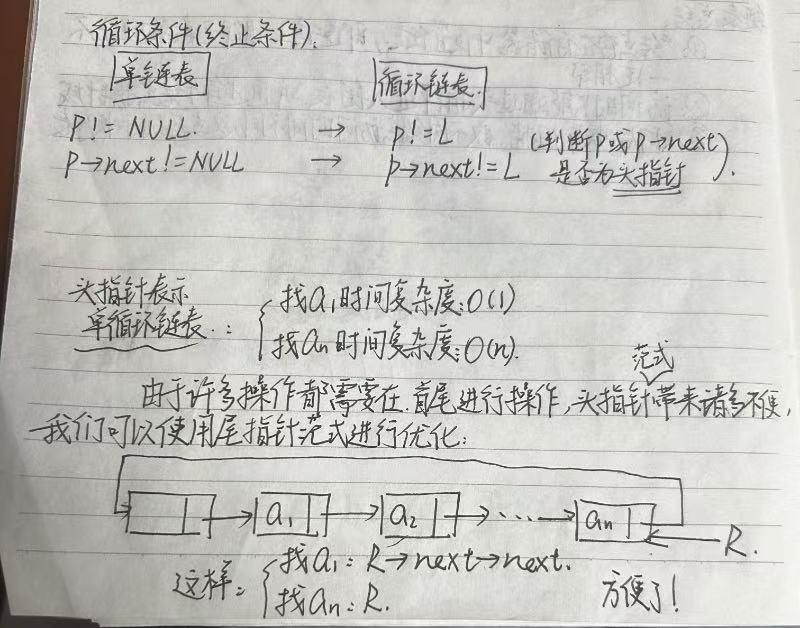 循环条件(终止条件):
单链表 循环链表.
P!=NULL. → P!=L (判断P或P→next)
P→next!=NULL → P→next!=L 是否为头指针.
头指针表示 找a₁时间复杂度:O(1)
单循环链表.: 找aₙ时间复杂度:O(n).
范式
由于许多操作都需要在首尾进行操作,头指针带来诸多不便,
我们可以使用尾指针范式进行优化:
a₁ a₂ ... aₙ
R.
这样: 找a₁: R→next→next.
找aₙ: R. 方便了!